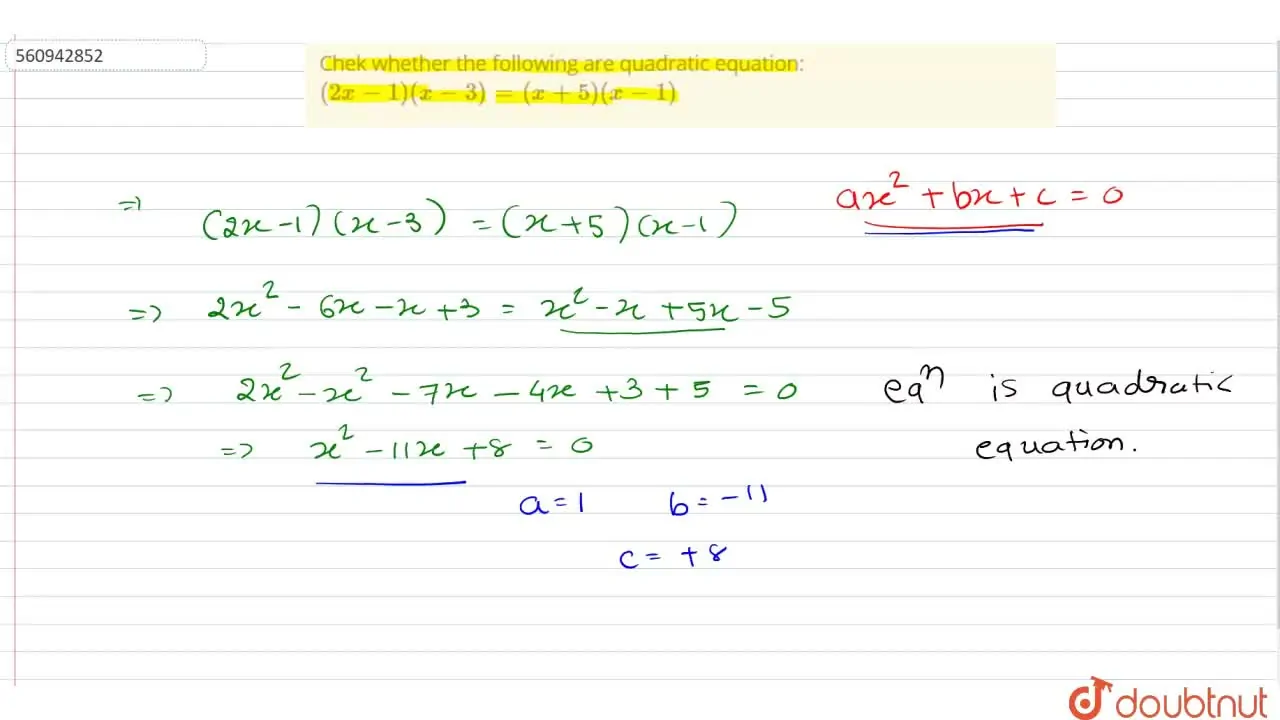 560942852
Chek whether the following are quadratic equation:
(2x − 1)(x − 3) = (x + 5)(x − 1)
ax² + bx + c = 0
=> (2x-1)(x-3) = (x+5)(x-1)
=> 2x² - 6x - x + 3 = x² - x + 5x - 5
=> 2x² - x² - 7x - 4x + 3 + 5 = 0
=> x² - 11x + 8 = 0
a = 1 b = -11
c = +8
eqⁿ is quadratic
equation.
doubtnut